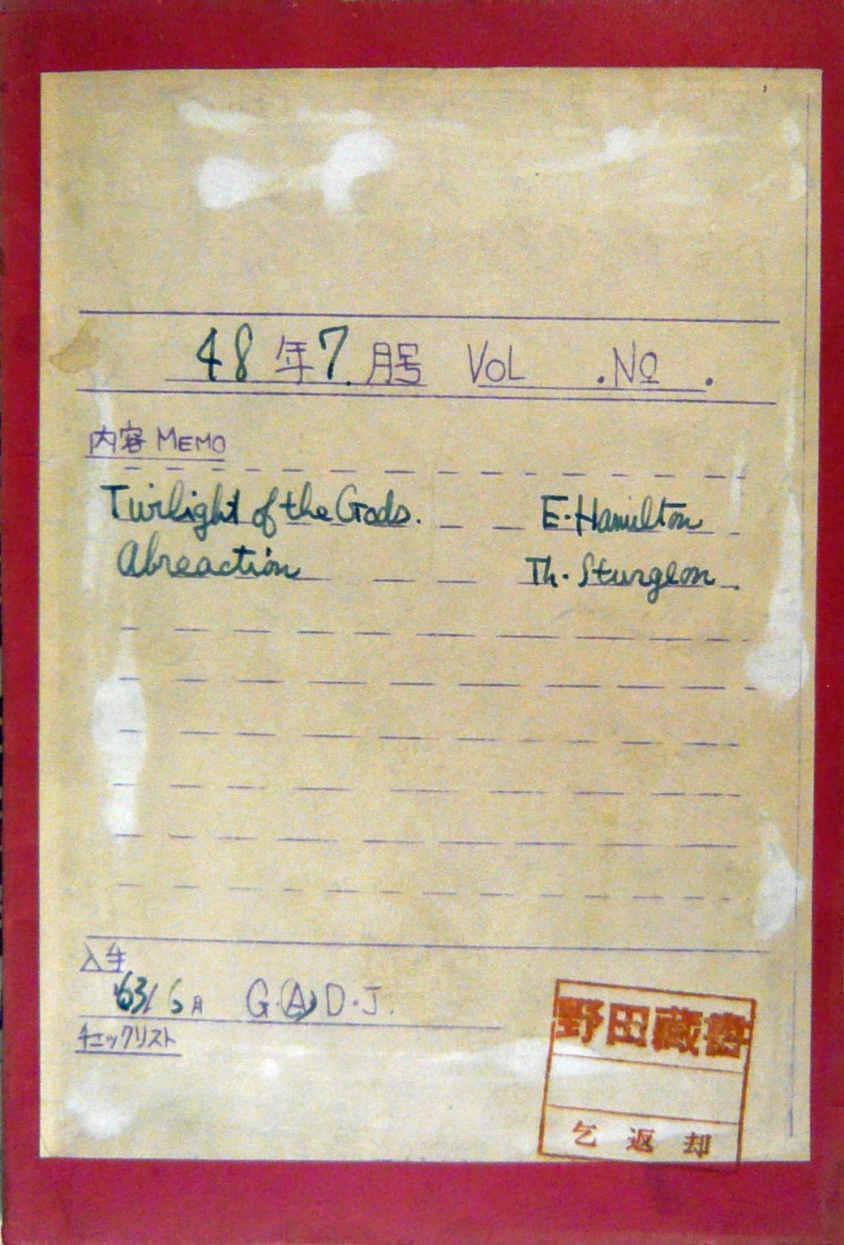 48年7月号 VOL .NO .
内容 MEMO
Twilight of the Gods. E. Hamilton
Abreaction Th. Sturgeon
入手
'63/6月 G.(A)D.J.
チェックリスト
野田蔵書
乞返却